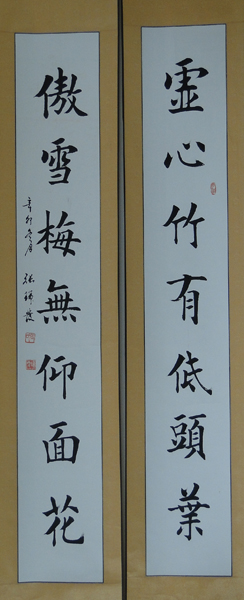 虛心竹有低頭葉
傲雪梅無仰面花
辛卯冬月